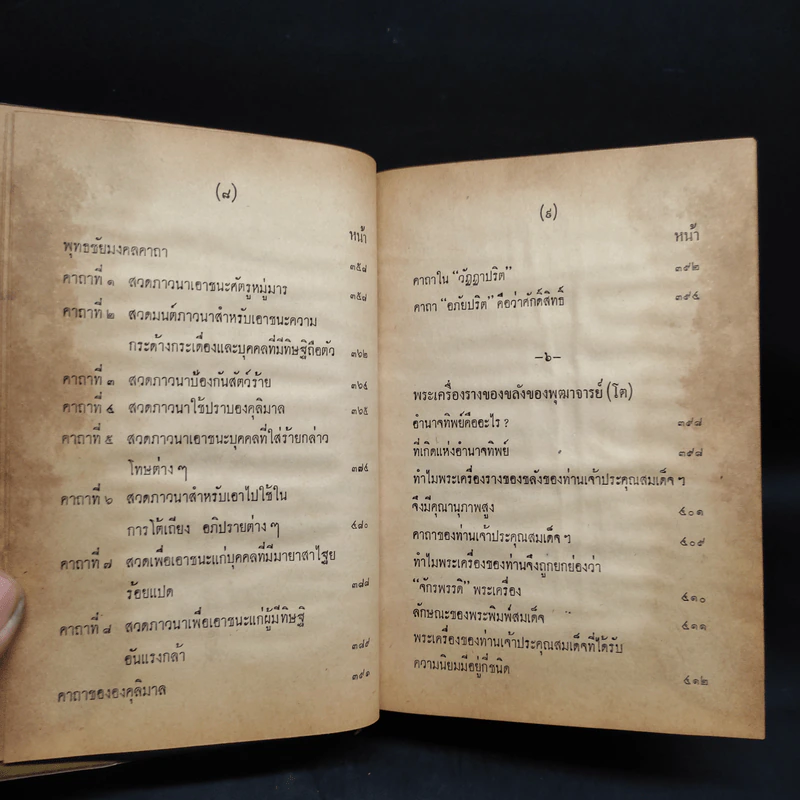 (๘)
หน้า
พุทธชัยมงคลคาถา ๓๕๘
คาถาที่ ๑ สวดภาวนาเอาชนะศัตรูหมู่มาร ๓๕๘
คาถาที่ ๒ สวดมนต์ภาวนาสำหรับเอาชนะความ
กระด้างกระเดื่องและบุคคลที่มีทิษฐิถือตัว ๓๖๒
คาถาที่ ๓ สวดภาวนาป้องกันสัตว์ร้าย ๓๖๔
คาถาที่ ๔ สวดภาวนาใช้ปราบองคุลิมาล ๓๖๕
คาถาที่ ๕ สวดภาวนาเอาชนะบุคคลที่ใส่ร้ายกล่าว
โทษต่าง ๆ ๓๗๔
คาถาที่ ๖ สวดภาวนาสำหรับเอาไปใช้ใน
การโต้เถียง อภิปรายต่าง ๆ ๔๘๐
คาถาที่ ๗ สวดเพื่อเอาชนะแก่บุคคลที่มีมายาสาไถย
ร้อยแปด ๓๘๘
คาถาที่ ๘ สวดภาวนาเพื่อเอาชนะแก่ผู้มีทิษฐิ
อันแรงกล้า ๓๘๙
คาถาขององคุลิมาล ๓๙๑
(๙)
หน้า
คาถาใน “วัฏฏาปริต” ๓๙๒
คาถา “อภัยปริต” คือว่าศักดิ์สิทธิ์ ๓๙๕
—๖—
พระเครื่องรางของขลังของพุฒาจารย์ (โต)
อำนาจทิพย์คืออะไร ? ๓๙๘
ที่เกิดแห่งอำนาจทิพย์ ๓๙๘
ทำไมพระเครื่องรางของขลังของท่านเจ้าประคุณสมเด็จ ฯ
จึงมีคุณานุภาพสูง ๔๐๑
คาถาของท่านเจ้าประคุณสมเด็จ ฯ ๔๐๙
ทำไมพระเครื่องของท่านจึงถูกยกย่องว่า
“จักรพรรดิ” พระเครื่อง ๔๑๐
ลักษณะของพระพิมพ์สมเด็จ ๔๑๑
พระเครื่องของท่านเจ้าประคุณสมเด็จที่ได้รับ
ความนิยมมีอยู่กี่ชนิด ๔๑๒